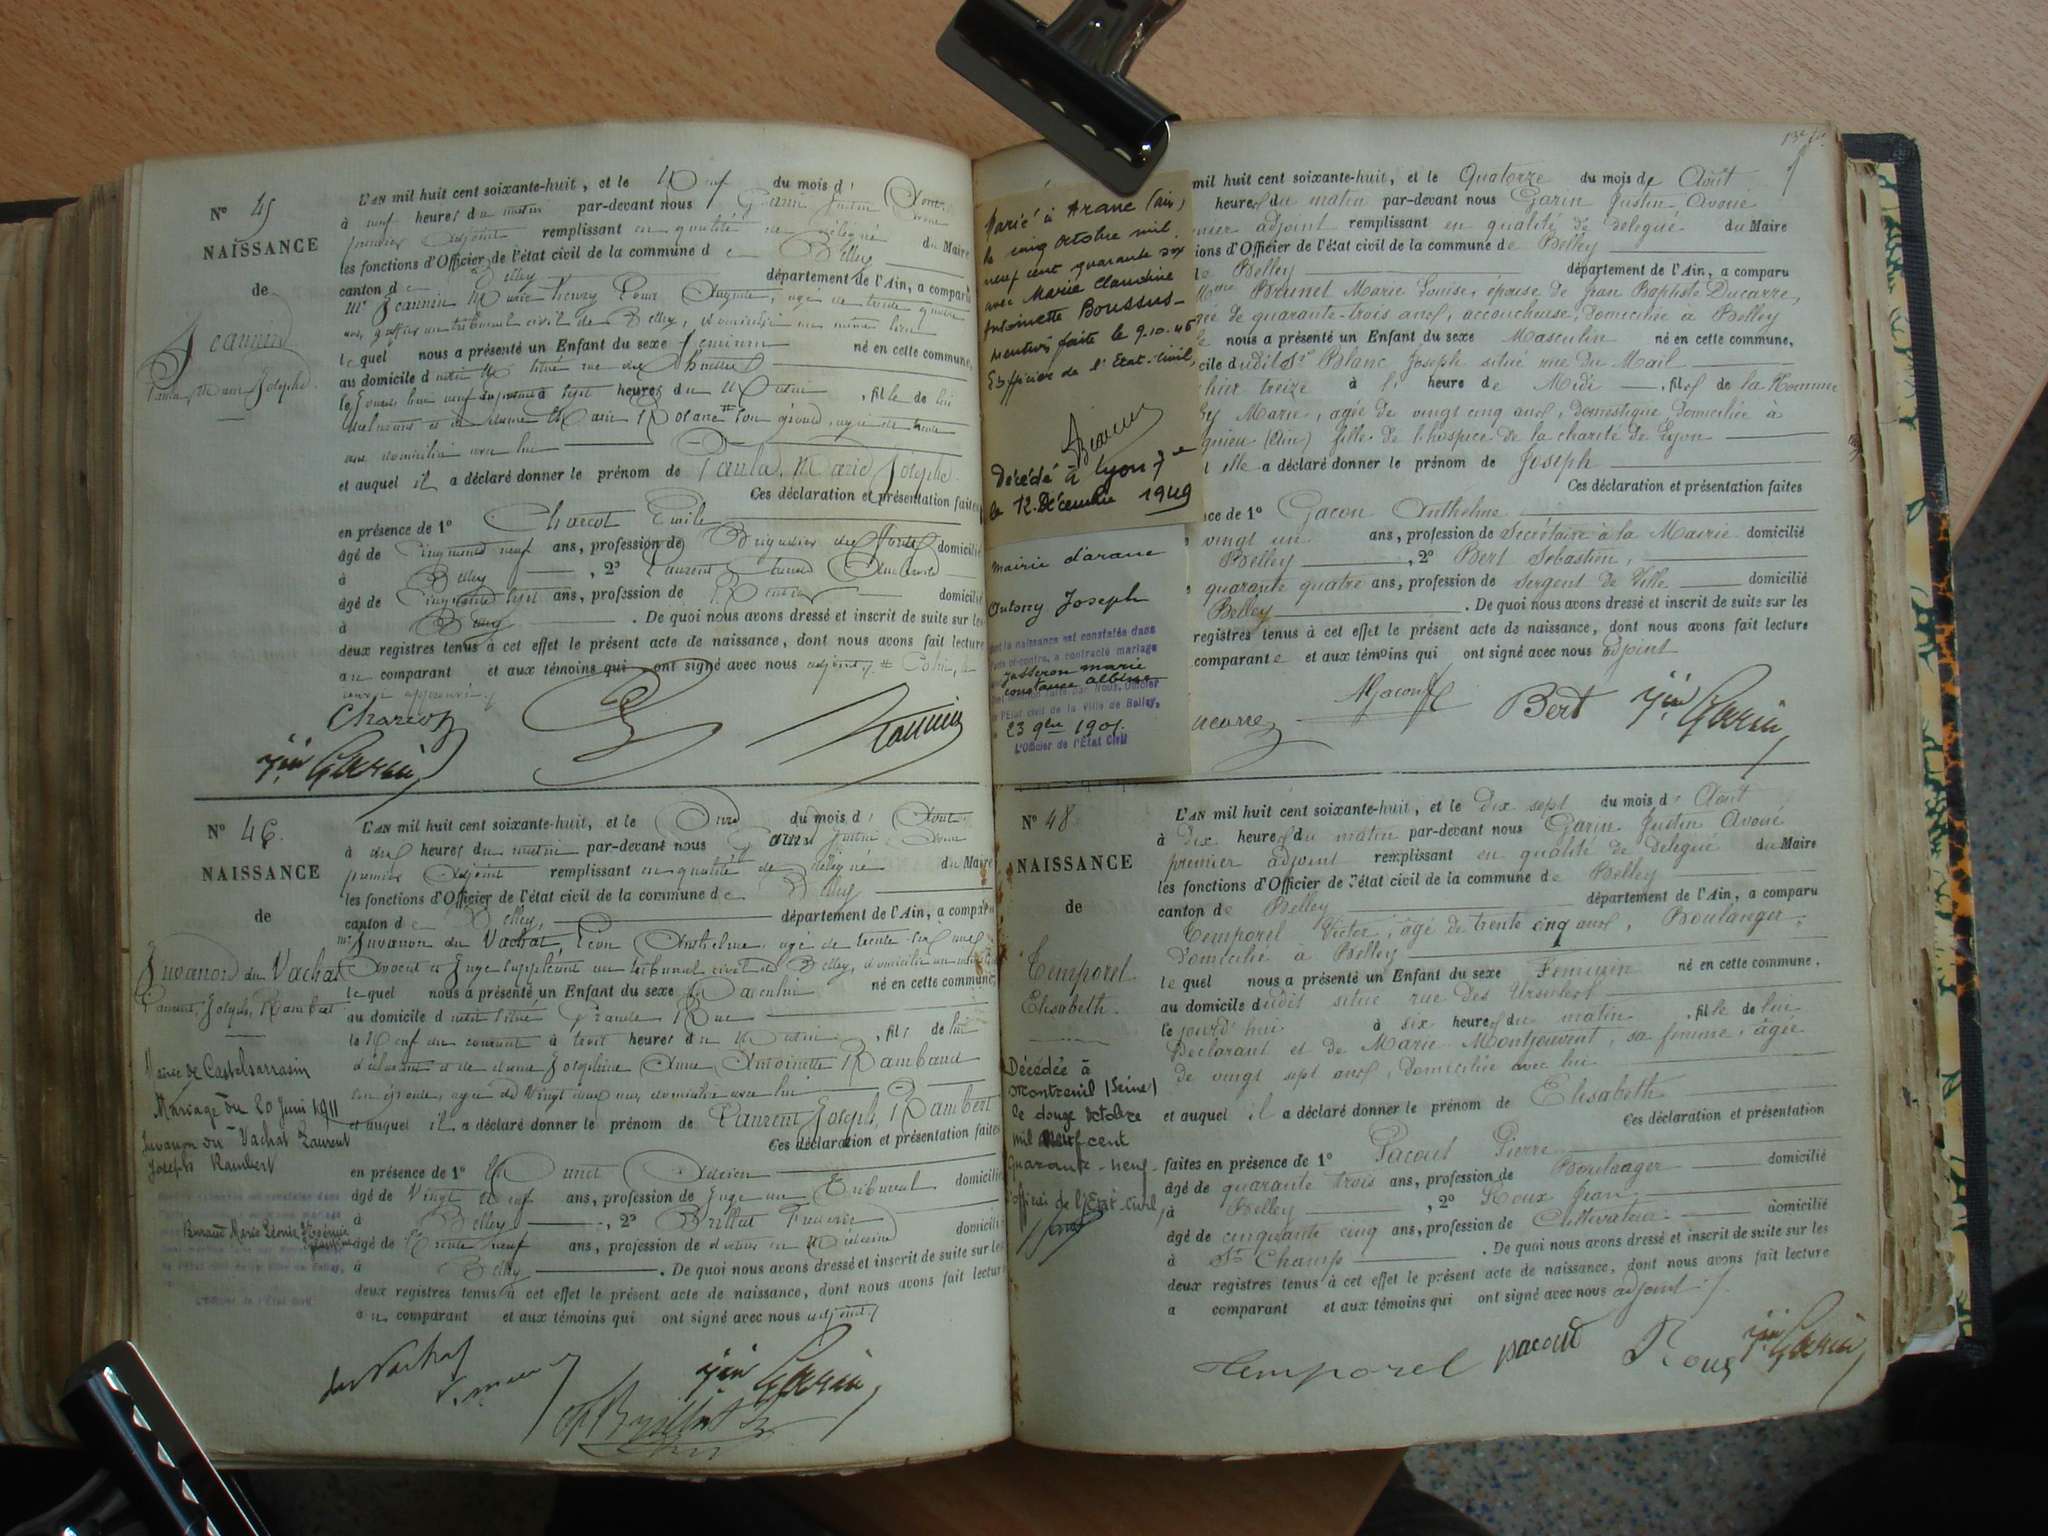 N° 45
NAISSANCE
de
Jeannin
Paula, Marie Josèphe.
L'AN mil huit cent soixante-huit, et le Neuf du mois d'Août
à neuf heures du matin par-devant nous Garin Justin Avoué
premier Adjoint remplissant en qualité de délégué du Maire
les fonctions d'Officier de l'état civil de la commune de Belley
canton de Belley département de l'Ain, a comparu
Mr Jeannin Marie Henry Auguste, âgé de trente quatre
ans, greffier au tribunal civil de Belley, domicilié au même lieu
lequel nous a présenté un Enfant du sexe féminin né en cette commune,
au domicile situé rue des
le heures du Matin, fille de lui
déclarant et de dame Marie son épouse, âgée de trente
ans domiciliée avec lui
et auquel il a déclaré donner le prénom de Paula, Marie Josèphe.
Ces déclaration et présentation faites
en présence de 1° Charcot Emile
âgé de cinquante neuf ans, profession de Brigadier domicilié
à Belley, 2° Laurent
âgé de cinquante sept ans, profession de domicilié
à Belley. De quoi nous avons dressé et inscrit de suite sur les
deux registres tenus à cet effet le présent acte de naissance, dont nous avons fait lecture
au comparant et aux témoins qui ont signé avec nous adjoint
renvoi approuvé
Charcot Jeannin
Jin Garin
N° 46.
NAISSANCE
de
Juvanon du Vachat
Laurent, Joseph, Rambert
L'AN mil huit cent soixante-huit, et le Onze du mois d'Août
à dix heures du matin par-devant nous Garin Justin Avoué
premier Adjoint remplissant en qualité de délégué du Maire
les fonctions d'Officier de l'état civil de la commune de Belley
canton de Belley, département de l'Ain, a comparu
Mr Juvanon du Vachat, Léon Anthelme, âgé de trente six ans
Avocat et Juge suppléant au tribunal civil de Belley, domicilié au même lieu
lequel nous a présenté un Enfant du sexe Masculin né en cette commune,
au domicile dudit situé Grande Rue
le Neuf du courant à trois heures du Matin, fils de lui
déclarant et de dame Joséphine Anne Antoinette Rambaud
son épouse, âgée de vingt ans, domiciliée avec lui
et auquel il a déclaré donner le prénom de Laurent, Joseph, Rambert
Ces déclaration et présentation faites
en présence de 1° Lucien
âgé de Vingt Neuf ans, profession de Juge au Tribunal domicilié
à Belley, 2° Brillat Frédéric
âgé de trente neuf ans, profession de docteur en Médecine domicilié
à Belley. De quoi nous avons dressé et inscrit de suite sur les
deux registres tenus à cet effet le présent acte de naissance, dont nous avons fait lecture
au comparant et aux témoins qui ont signé avec nous adjoint
Mairie de Castelsarrasin
Mariage du 20 Juin 1911
Juvanon du Vachat Laurent
Joseph Rambert
Marie Léonie
L'Officier de l'État Civil
du Vachat
Jin Garin
Marié à Arane (Ain)
le cinq Octobre mil
neuf cent quarante six
avec Marie Claudine
Antoinette Boussus
Mention faite le 9.10.46
L'Officier de l'Etat-Civil,
Décédé à Lyon 7e
le 12 Décembre 1949
Mairie d'arane
Antony Joseph
dont la naissance est constatée dans
l'acte ci-contre, a contracté mariage
Jasseron marie
constance albine
faite par Nous, Officier
de l'Etat civil de la Ville de Belley,
23 9bre 1901.
L'Officier de l'État Civil
mil huit cent soixante-huit, et le Quatorze du mois de Août
heures du matin par-devant nous Garin Justin Avoué
mier adjoint remplissant en qualité de délégué du Maire
ions d'Officier de l'état civil de la commune de Belley
Belley département de l'Ain, a comparu
Mme Brunet Marie Louise, épouse de Jean Baptiste Ducarre,
ée de quarante-trois ans, accoucheuse, domiciliée à Belley
nous a présenté un Enfant du sexe Masculin né en cette commune,
cile dudit Sr Blanc Joseph situé rue du Mail
hier treize à l' heure de Midi, fils de la Nommée
Marie, agée de vingt cinq ans, domestique domiciliée à
gnieu (Ain) fille de l'hospice de la charité de Lyon
elle a déclaré donner le prénom de Joseph
Ces déclaration et présentation faites
ce de 1° Gacon Anthelme
vingt un ans, profession de Secrétaire à la Mairie domicilié
Belley, 2° Bert Sébastien,
quarante quatre ans, profession de Sergent de Ville domicilié
Belley. De quoi nous avons dressé et inscrit de suite sur les
registres tenus à cet effet le présent acte de naissance, dont nous avons fait lecture
comparante et aux témoins qui ont signé avec nous adjoint
ucarre Gacon Bert Jin Garin
N° 48
NAISSANCE
de
Temporel
Elisabeth.
L'AN mil huit cent soixante-huit, et le dix sept du mois d'Août
à dix heures du matin par-devant nous Garin Justin Avoué
premier adjoint remplissant en qualité de délégué du Maire
les fonctions d'Officier de l'état civil de la commune de Belley
canton de Belley département de l'Ain, a comparu
Temporel Victor, âgé de trente cinq ans, Boulanger,
domicilié à Belley
lequel nous a présenté un Enfant du sexe Féminin né en cette commune,
au domicile dudit situé rue des Ursules
le jourd'hui à six heures du matin, fille de lui
Déclarant et de Marie Montjouvent, sa femme, agée
de vingt sept ans, domiciliée avec lui
et auquel il a déclaré donner le prénom de Elisabeth
Ces déclaration et présentation
faites en présence de 1° Pacout Pierre
âgé de quarante trois ans, profession de Boulanger domicilié
à Belley, 2° Roux Jean
âgé de cinquante cinq ans, profession de Cultivateur domicilié
à St Champ. De quoi nous avons dressé et inscrit de suite sur les
deux registres tenus à cet effet le présent acte de naissance, dont nous avons fait lecture
a comparant et aux témoins qui ont signé avec nous adjoint
Décédée à
Montreuil (Seine)
le douze Octobre
mil neuf cent
quarante-neuf
L'officier de l'Etat Civil
Temporel pacout Roux Jin Garin